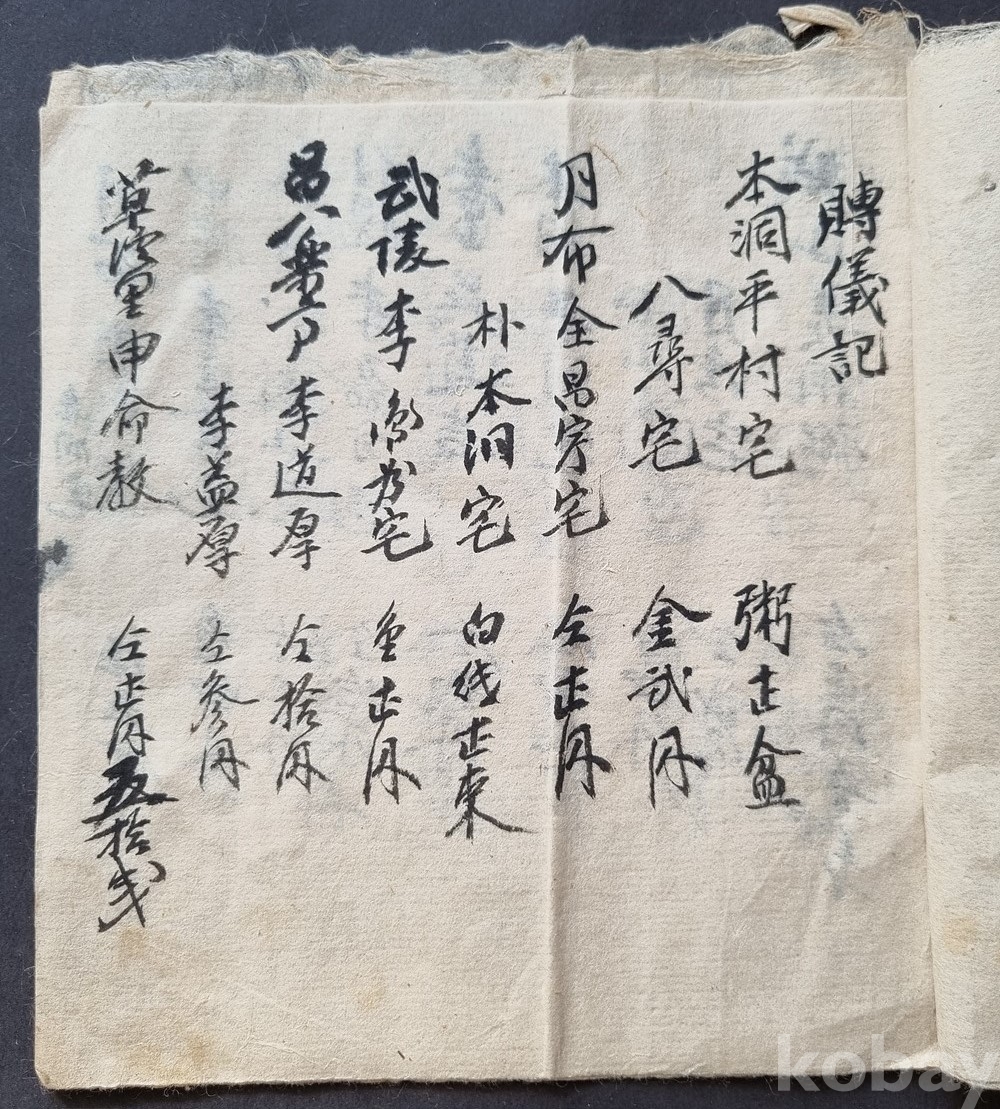 賻儀記
本洞平村宅 粥壱盆
八尋宅 金弐円
月布金昌宇宅 仝壱円
朴本洞宅 白紙壱束
武陵李 宅 金壱円
李道厚 仝拾円
李益厚 仝参円
里申命教 仝壱円五拾戋
kobay